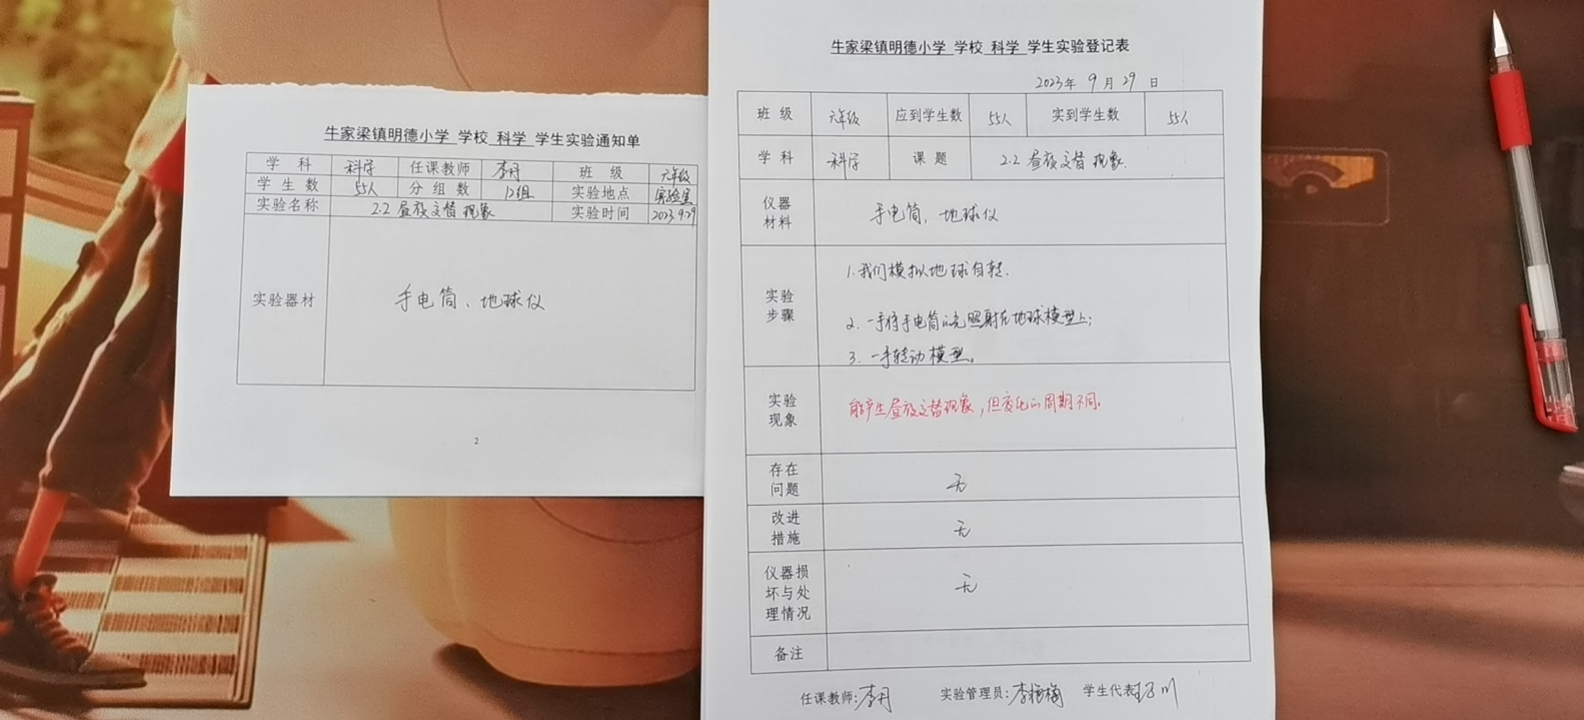 牛家梁镇明德小学 学校 科学 学生实验通知单
学 科 科学 任课教师 李丹 班 级 六年级
学 生 数 55人 分 组 数 12组 实验地点 实验室
实验名称 2.2 昼夜交替现象 实验时间 2023.9.29
实验器材 手电筒、地球仪
2
牛家梁镇明德小学 学校 科学 学生实验登记表
2023年 9 月 29 日
班 级 六年级 应到学生数 55人 实到学生数 55人
学 科 科学 课 题 2.2 昼夜交替现象
仪器
材料 手电筒、地球仪
实验
步骤
1.我们模拟地球自转.
2.一手将手电筒的光照射在地球模型上;
3.一手转动模型。
实验
现象
能产生昼夜交替现象,但变化的周期不同.
存在
问题 无
改进
措施 无
仪器损
坏与处
理情况 无
备注
任课教师:李丹 实验管理员: 学生代表